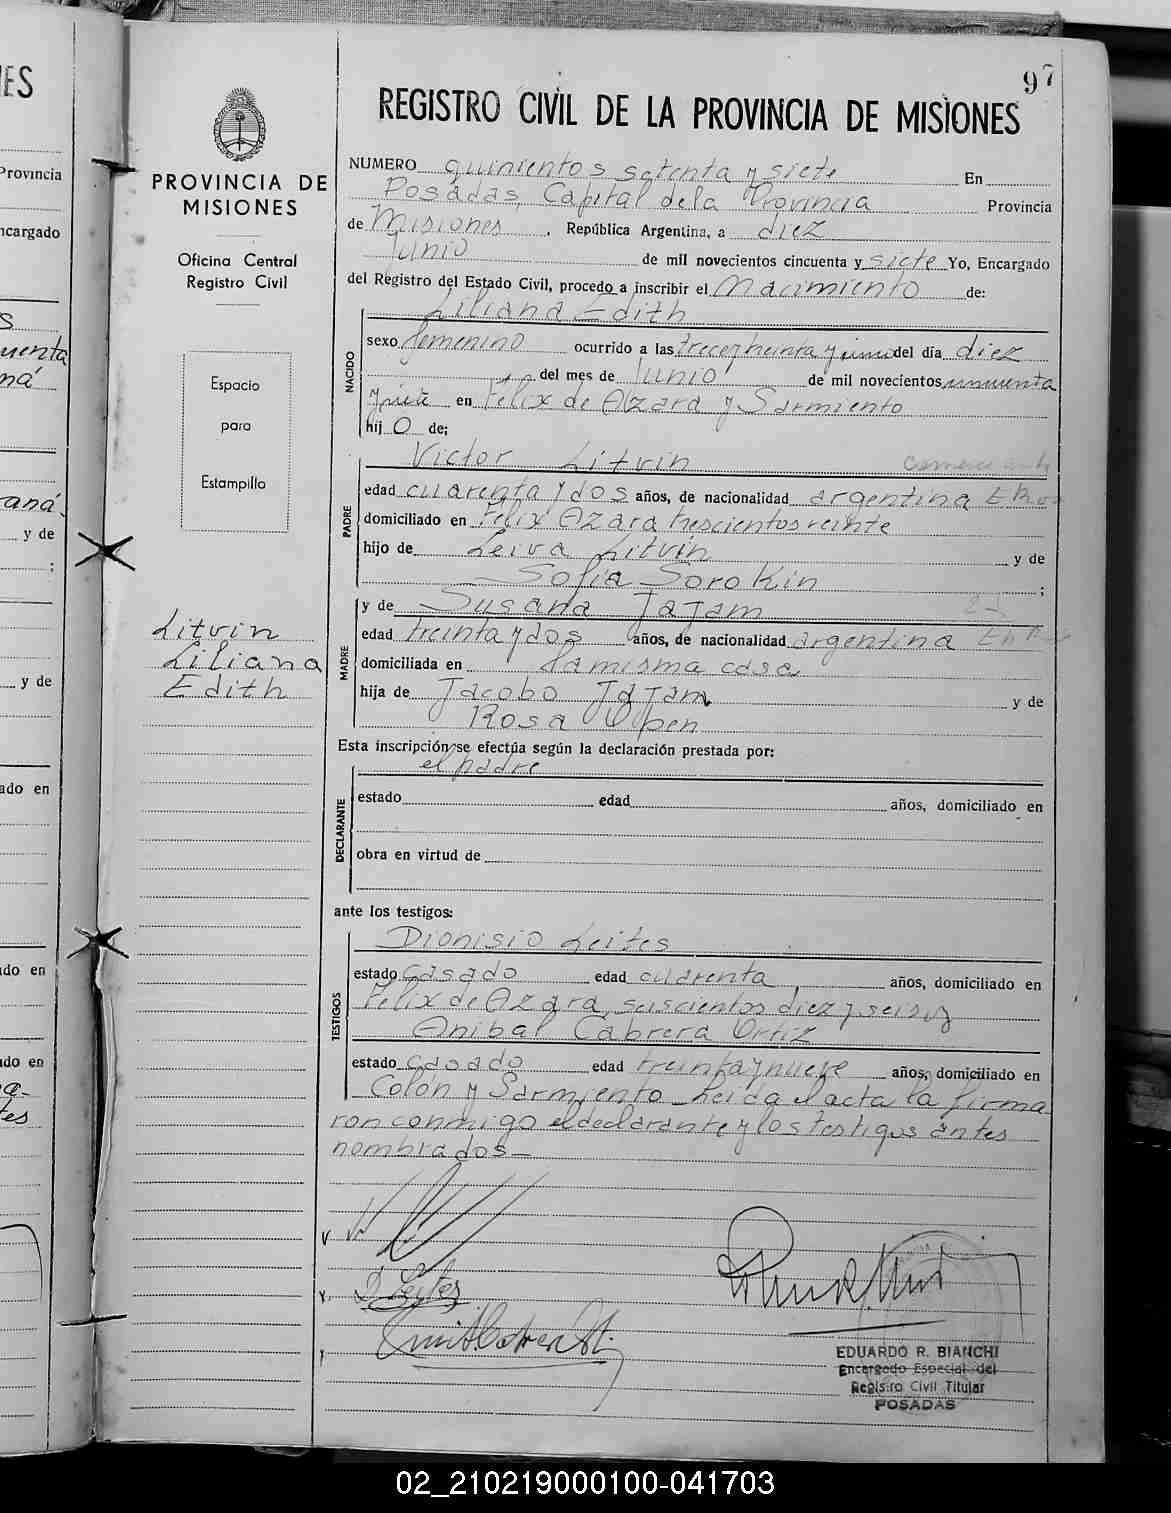 97
REGISTRO CIVIL DE LA PROVINCIA DE MISIONES
PROVINCIA DE
MISIONES
Oficina Central
Registro Civil
Espacio
para
Estampillo
Litvin
Liliana
Edith
NUMERO quinientos setenta y siete En
Posadas, Capital de la Provincia Provincia
de Misiones, República Argentina, a diez
Junio de mil novecientos cincuenta y siete Yo, Encargado
del Registro del Estado Civil, procedo a inscribir el Nacimiento de:
Liliana Edith
NACIDO
sexo femenino ocurrido a las trece y treinta y del día diez
del mes de Junio de mil novecientos cincuenta
y siete en Félix de Azara y Sarmiento
hijo de;
Victor Litvin comerciante
PADRE
edad cuarenta y dos años, de nacionalidad argentina
domiciliado en Félix Azara trescientos veinte
hijo de Leiva Litvin y de
Sofía Sorokin ;
y de Susana Jajam
MADRE
edad treinta y dos años, de nacionalidad argentina
domiciliada en la misma casa
hija de Jacobo Jajam y de
Rosa Open
Esta inscripción se efectúa según la declaración prestada por:
el padre
DECLARANTE
estado edad años, domiciliado en
obra en virtud de
ante los testigos:
Dionisio Leites
TESTIGOS
estado casado edad cuarenta, años, domiciliado en
Félix de Azara, seiscientos diez y seis y
Anibal Cabrera Ortiz
estado casado edad treinta y nueve años, domiciliado en
Colón y Sarmiento. Leida el acta la firma
ron conmigo el declarante y los testigos antes
nombrados.-
D Leites
EDUARDO R. BIANCHI
Encargado Especial del
Registro Civil Titular
POSADAS
02_210219000100-041703